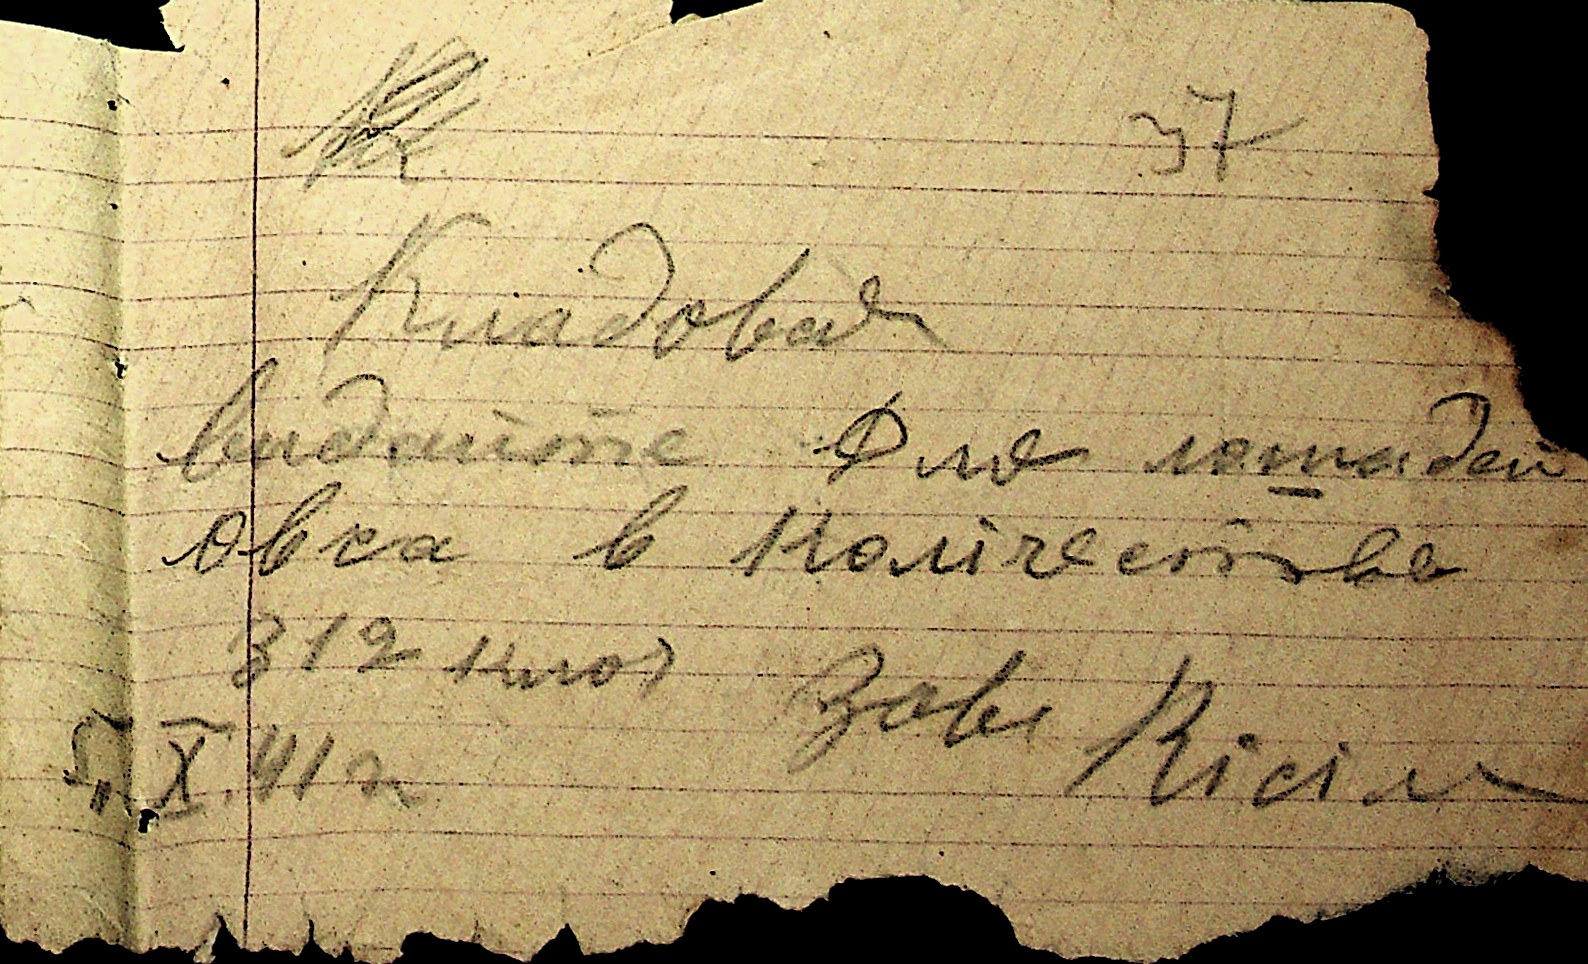 37
Кладовая
видайте для лошадей
овса в колічестве
312 кло Заве Кісіл
5„ X.41 г